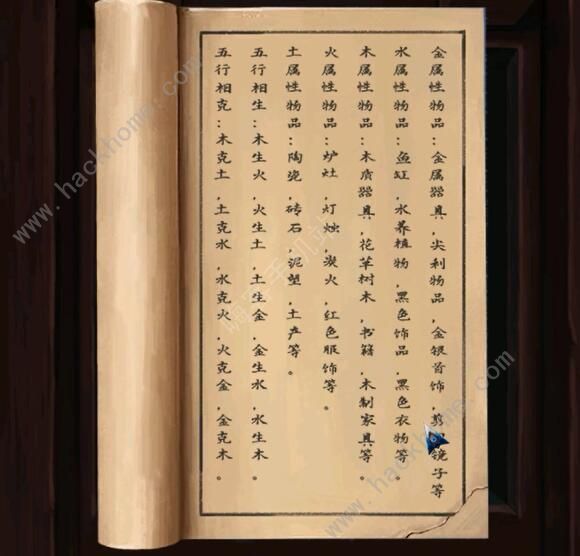 金属性物品：金属器具，尖利物品，金银首饰，剪 镜子等
水属性物品：鱼缸，水养植物，黑色饰品，黑色衣物等。
木属性物品：木质器具，花草树木，书籍，木制家具等。
火属性物品：炉灶，灯烛，炭火，红色服饰等。
土属性物品：陶瓷，砖石，泥塑，土产等。
五行相生：木生火，火生土，土生金，金生水，水生木。
五行相克：木克土，土克水，水克火，火克金，金克木。
www.hackhome.com
www.hackhome.com
www.hackhome.com